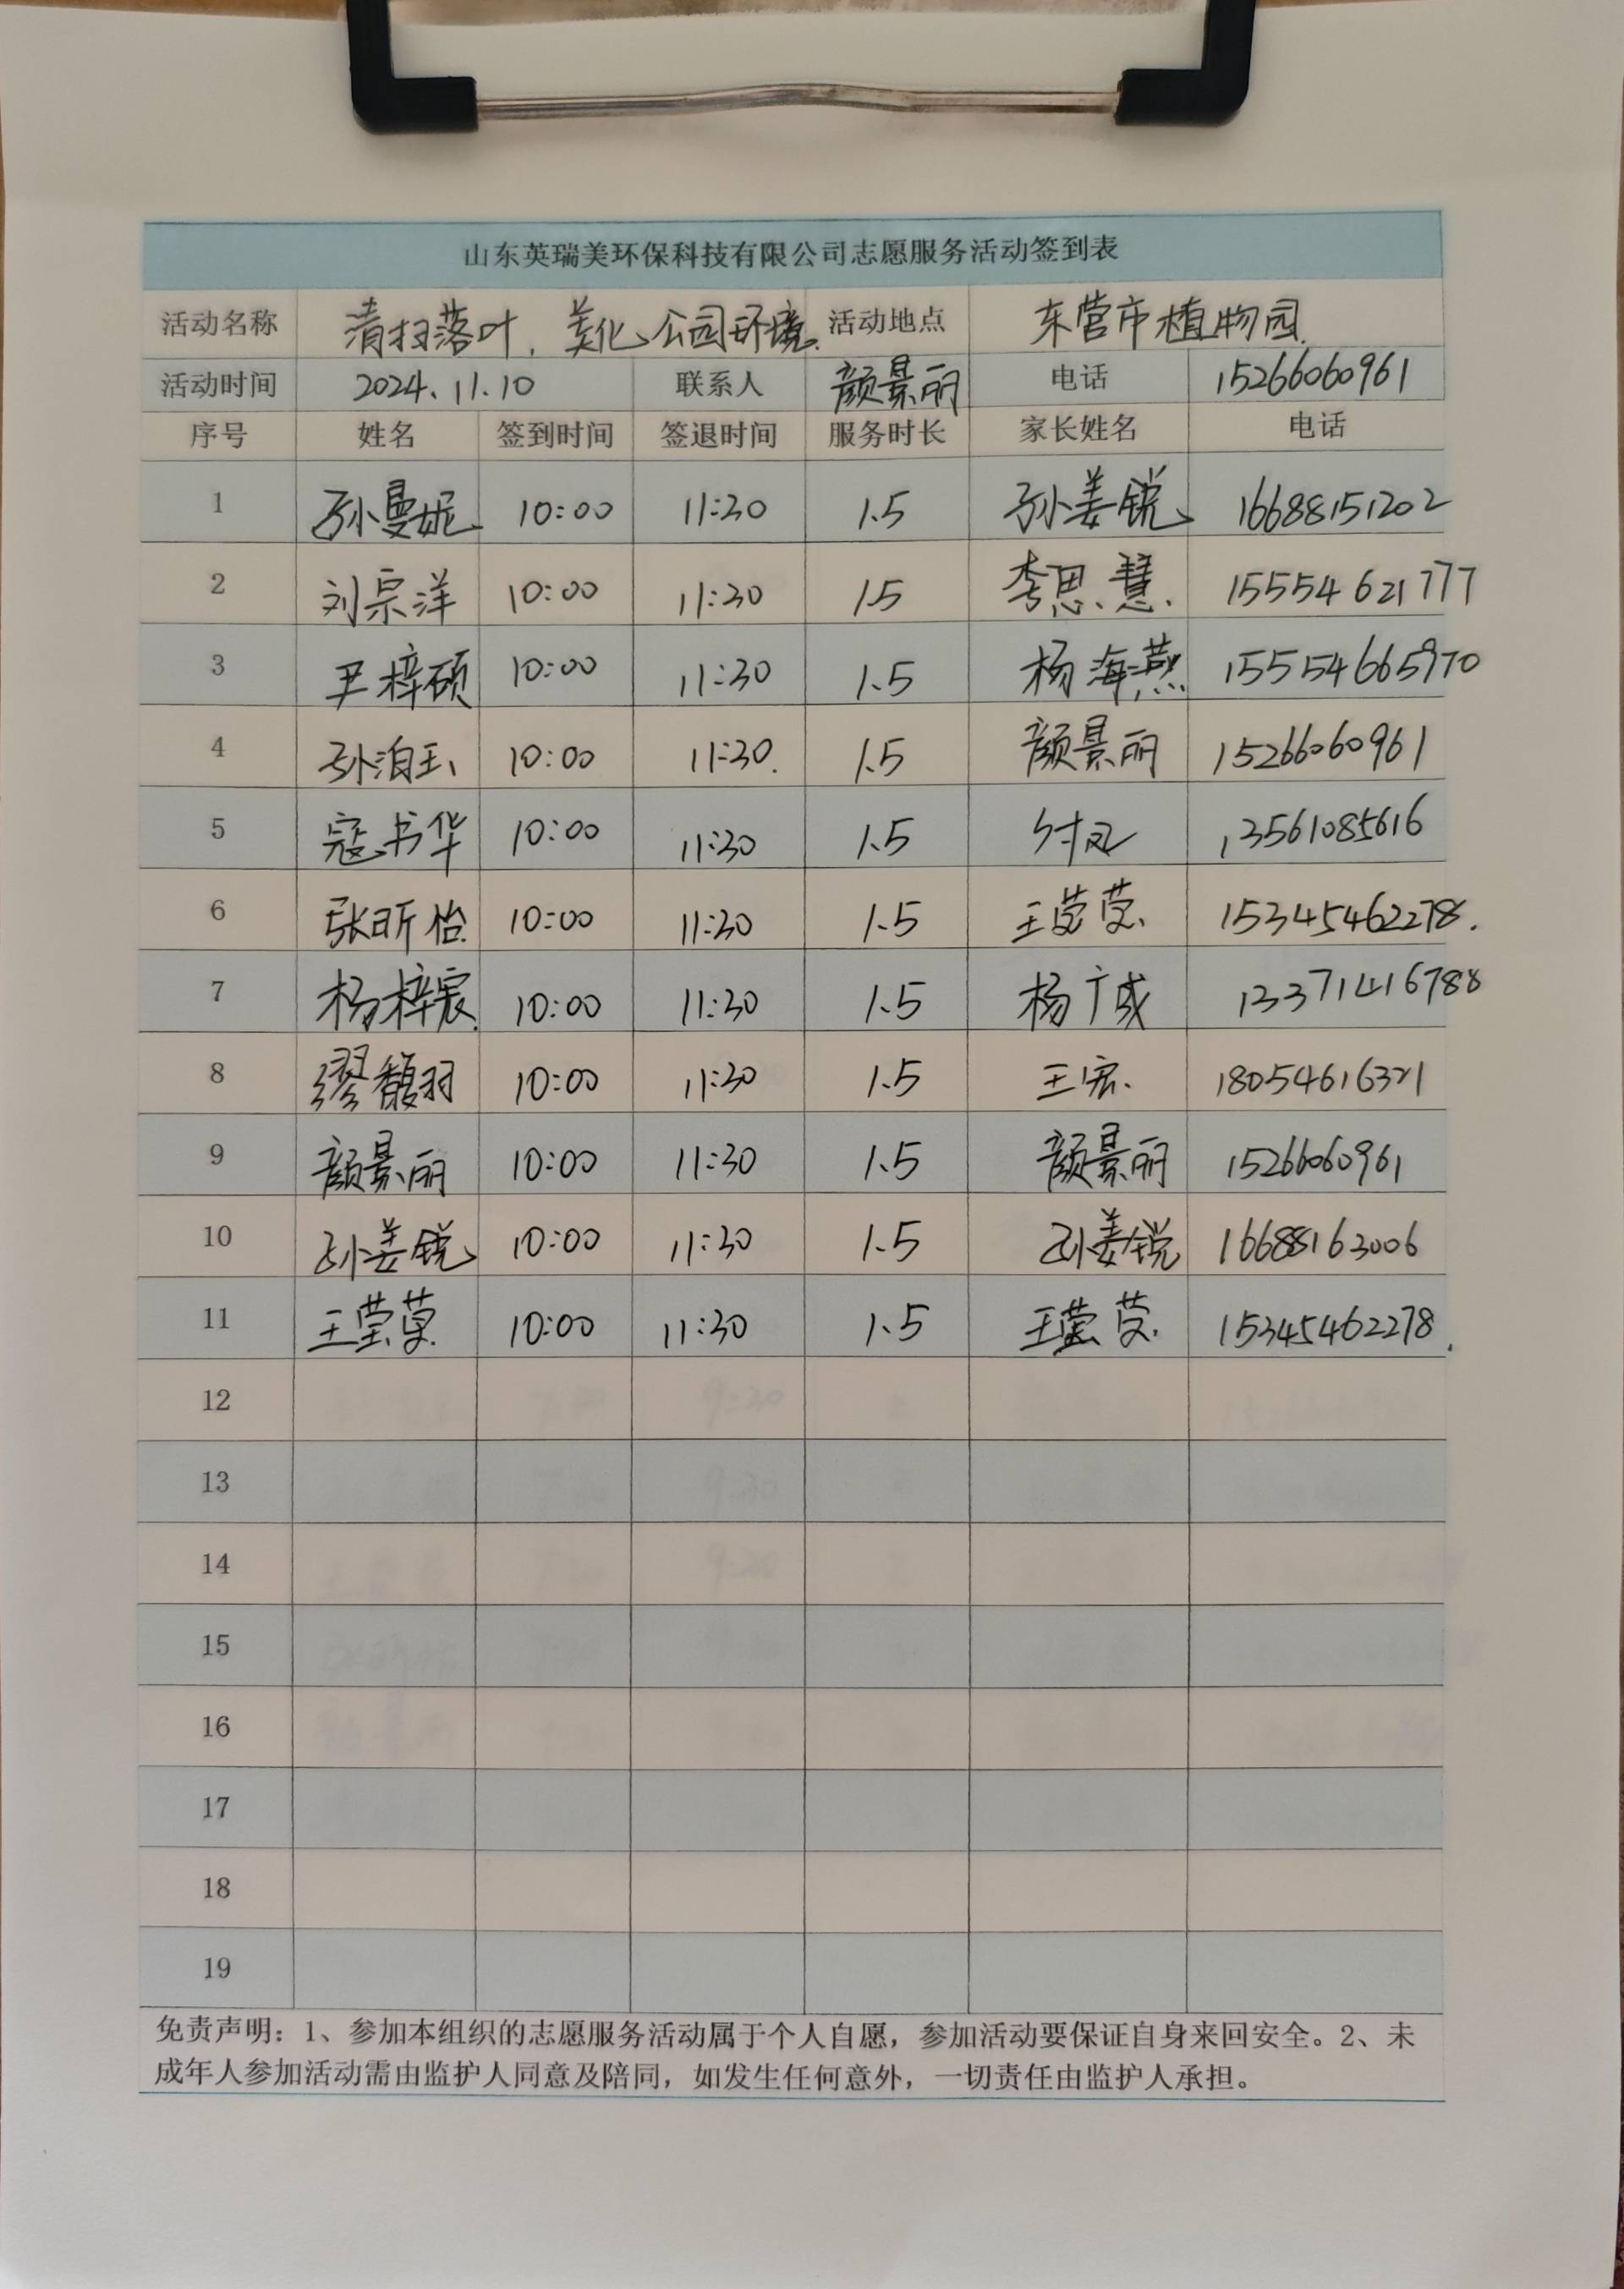 山东英瑞美环保科技有限公司志愿服务活动签到表
活动名称 清扫落叶，美化公园环境. 活动地点 东营市植物园.
活动时间 2024.11.10 联系人 颜景丽 电话 15266060961
序号 姓名 签到时间 签退时间 服务时长 家长姓名 电话
1 孙曼妮 10:00 11:30 1.5 孙姜锐 16688151202
2 刘宗洋 10:00 11:30 1.5 李思慧. 15554621777
3 尹梓硕 10:00 11:30 1.5 杨海燕 15554665970
4 孙泊玉 10:00 11:30. 1.5 颜景丽 15266060961
5 寇书华 10:00 11:30 1.5 付凤 13561085616
6 张昕怡. 10:00 11:30 1.5 王莹莹. 15345462278.
7 杨梓宸. 10:00 11:30 1.5 杨广成 13371416788
8 缪馥羽 10:00 11:30 1.5 王宏. 18054616321
9 颜景丽 10:00 11:30 1.5 颜景丽 15266060961
10 孙姜锐 10:00 11:30 1.5 孙姜锐 16688163006
11 王莹莹. 10:00 11:30 1.5 王莹莹. 15345462278.
12
13
14
15
16
17
18
19
免责声明：1、参加本组织的志愿服务活动属于个人自愿，参加活动要保证自身来回安全。2、未
成年人参加活动需由监护人同意及陪同，如发生任何意外，一切责任由监护人承担。